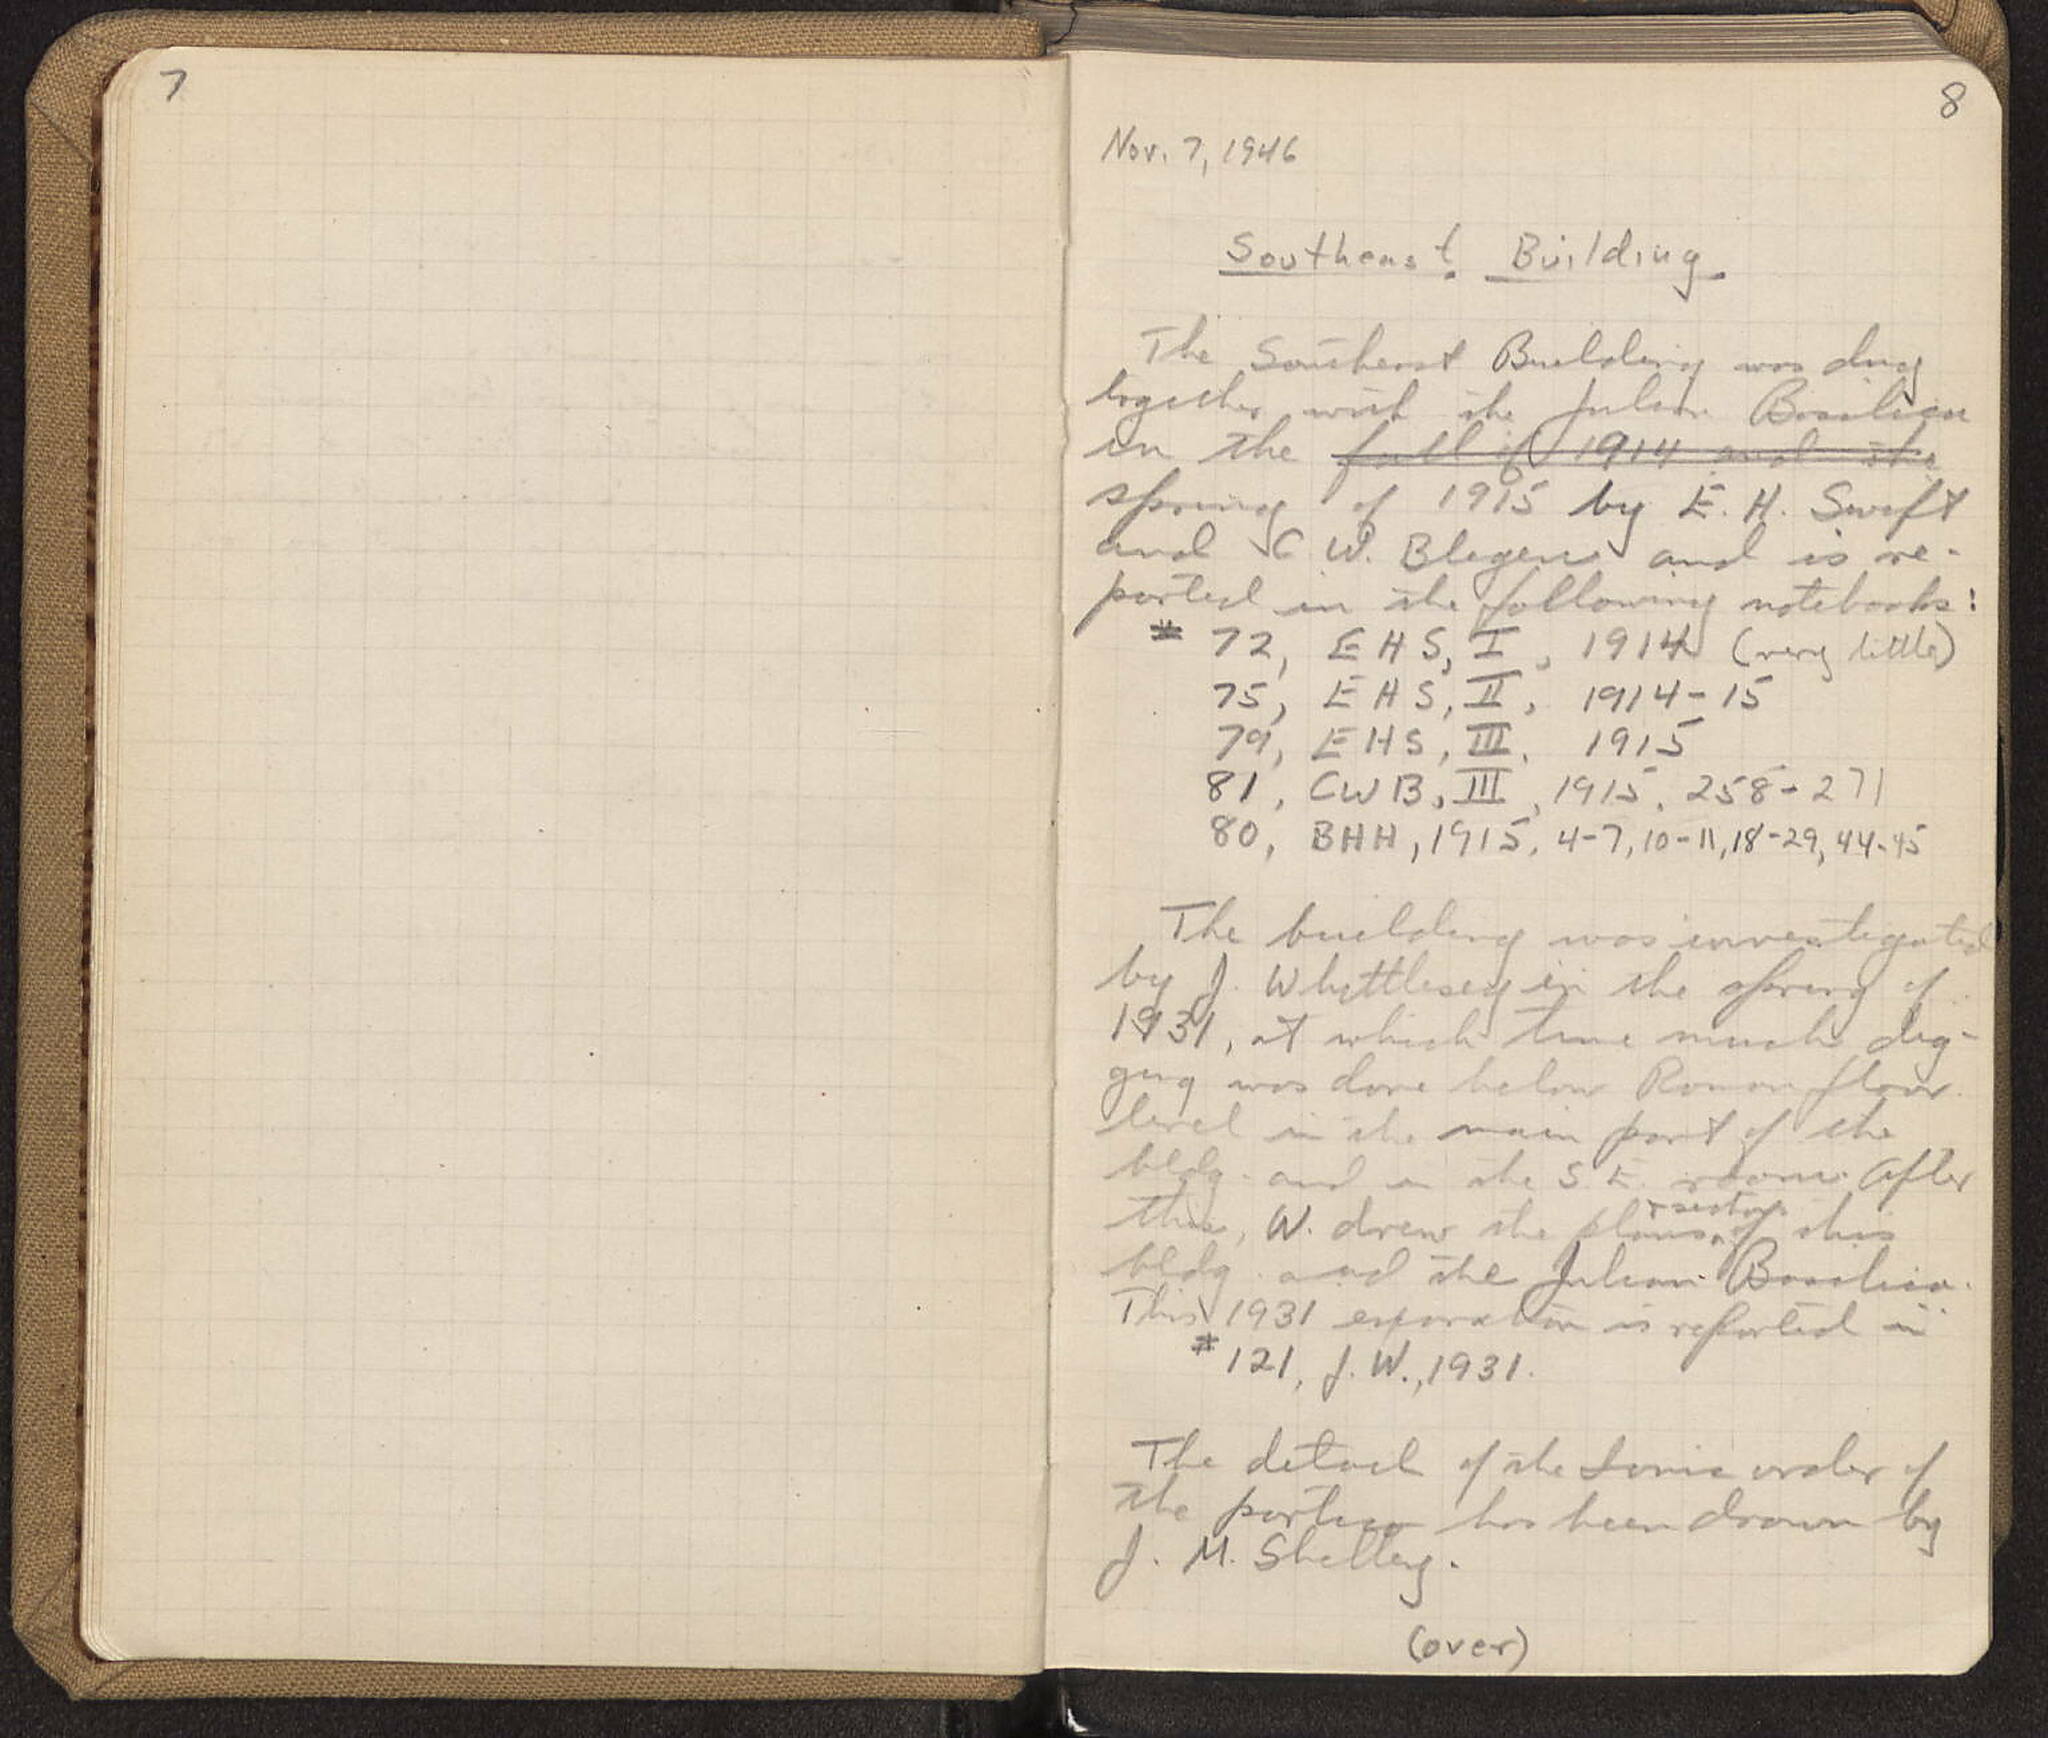 7
8
Nov. 7, 1946
Southeast Building.
The Southeast Building was dug
together with the Julian Basilica
in the fall of 1914 and the
spring of 1915 by E. H. Swift
and C W. Blegen and is re-
ported in the following notebooks:
# 72, EHS, I, 1914 (very little)
75, EHS, II, 1914-15
79, EHS, III, 1915
81, CWB, III, 1915, 258-271
80, BHH, 1915, 4-7, 10-11, 18-29, 44-45
The building was investigated
by J. Whittlesey in the spring of
1931, at which time much dig-
ging was done below Roman floor
level in the main part of the
bldg. and in the S.E. room. After
this, W. drew the plans + sections of this
bldg. and the Julian Basilica.
This 1931 exploration is reported in
# 121, J. W., 1931.
The detail of the Ionic order of
the portico has been drawn by
J. M. Shelley.
(over)